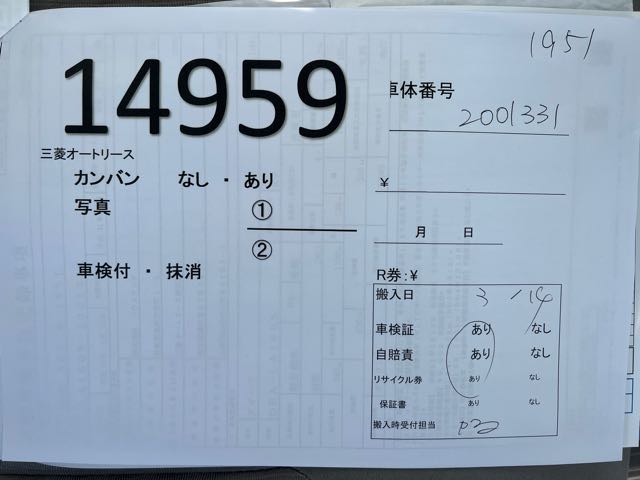 1951
14959
車体番号
2001331
三菱オートリース
カンバン なし ・ あり
¥
写真 ①
②
月 日
車検付 ・ 抹消
R券:¥
搬入日 3/14
車検証 あり なし
自賠責 あり なし
リサイクル券 あり なし
保証書 あり なし
搬入時受付担当